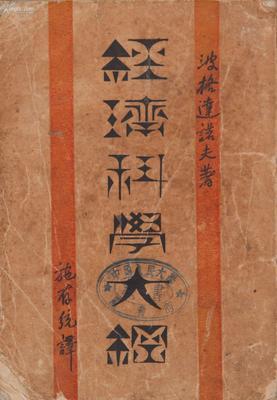 波格達諾夫著
經濟科學大綱
施存統譯